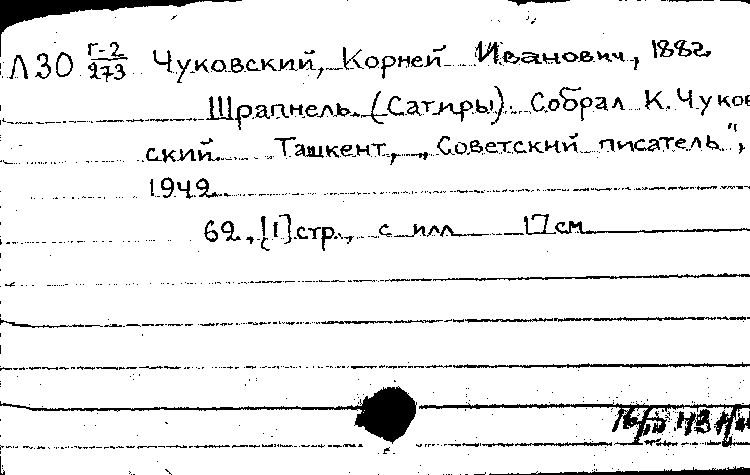 Л30 Г-2/273 Чуковский, Корней Иванович, 1882
Шрапнель. (Сатиры). Собрал К. Чуков
ский. Ташкент, „Советский писатель",
1942.
62, [1] стр., с илл 17 см